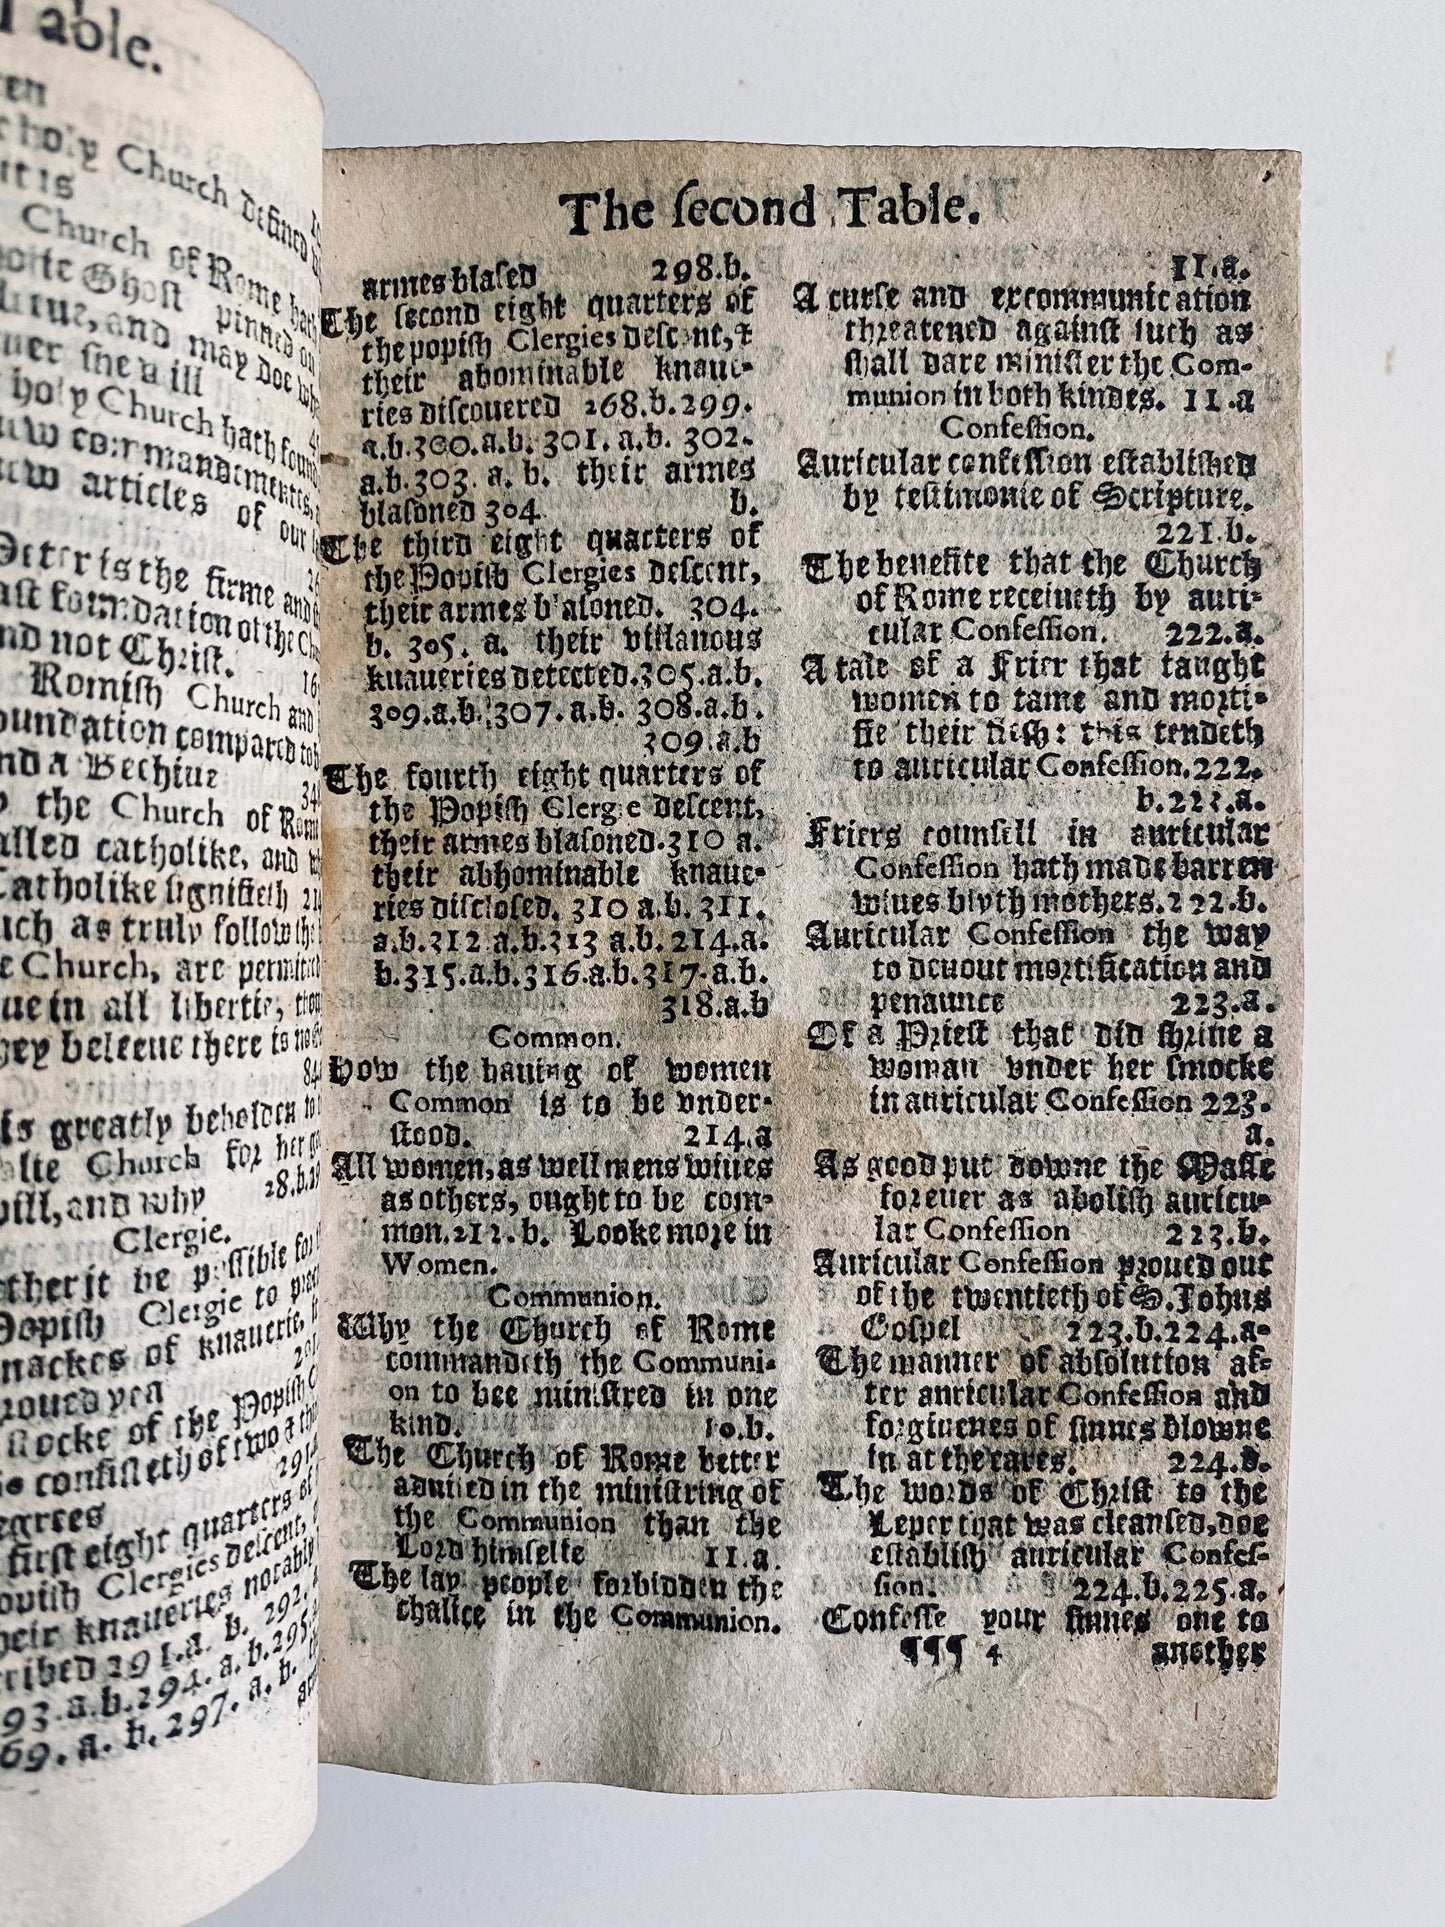 Table.
holy Church defined
it is
Church of Rome hath
Ghost pinned on
and may doe
holy Church hath found
new commandementes,
new articles of our
Peter is the firme and
foundation of the
and not Christ.
Romish Church and
foundation compared to
and a Bechiue
the Church of Rome
called catholike, and
Catholike signifieth
such as truly follow the
Church, are permitted
liue in all libertie,
they beleeue there is no
is greatly beholden to
Church for her
will, and why 28.b.29
Clergie.
Whether it be possible for
Popish Clergie to
knackes of knauerie,
proued yea
stocke of the Popish
consisteth of two &
degrees
first eight quarters of
Popish Clergies descent,
their knaueries notably
291.a. b. 292.
293.a.b.294. a.b.295.
269. a. b. 297. a.b.
The ſecond Table.
armes blaſed 298.b.
The ſecond eight quarters of
the popiſh Clergies deſcent, &
their abominable knaue-
ries diſcouered 268.b.299.
a.b.300.a.b. 301. a.b. 302.
a.b.303. a. b. their armes
blaſoned 304 b.
The third eight quarters of
the Popiſh Clergies deſcent,
their armes blaſoned. 304.
b. 305. a. their villanous
knaueries detected.305.a.b.
309.a.b. 307. a.b. 308.a.b.
309.a.b
The fourth eight quarters of
the Popiſh Clergie deſcent,
their armes blaſoned.310 a.
their abhominable knaue-
ries diſcloſed. 310 a.b. 311.
a.b.312 a.b.313 a.b. 214.a.
b.315.a.b.316.a.b.317.a.b.
318.a.b
Common.
How the hauing of women
Common is to be vnder-
ſtood. 214.a
All women, as well mens wiues
as others, ought to be com-
mon.212.b. Looke more in
Women.
Communion.
Why the Church of Rome
commandeth the Communi-
on to bee miniſtred in one
kind. 10.b.
The Church of Rome better
aduiſed in the miniſtring of
the Communion than the
Lord himſelfe 11.a.
The lay people forbidden the
chalice in the Communion.
11.a.
A curſe and excommunication
threatened againſt ſuch as
ſhall dare miniſter the Com-
munion in both kindes. 11.a
Confeſſion.
Auricular confeſſion eſtabliſhed
by teſtimonie of Scripture.
221.b.
The benefite that the Church
of Rome receiueth by auri-
cular Confeſſion. 222.a.
A tale of a Frier that taught
women to tame and morti-
fie their fleſh: this tendeth
to auricular Confeſſion.222.
b.223.a.
Friers counſell in auricular
Confeſſion hath made barren
wiues blyth mothers.222.b.
Auricular Confeſſion the way
to deuout mortification and
penaunce 223.a.
Of a Prieſt that did ſhrine a
woman vnder her ſmocke
in auricular Confeſſion 223.
a.
As good put downe the Maſſe
foreuer as aboliſh auricu-
lar Confeſſion 223.b.
Auricular Confeſſion proued out
of the twentieth of S.Johns
Goſpel 223.b.224.a.
The manner of abſolution af-
ter auricular Confeſſion and
forgiuenes of ſinnes blowne
in at the eares. 224.b.
The words of Chriſt to the
Leper that was cleanſed, doe
eſtabliſh auricular Confeſ-
ſion. 224.b.225.a.
Confeſſe your ſinnes one to
¶¶¶ 4 another